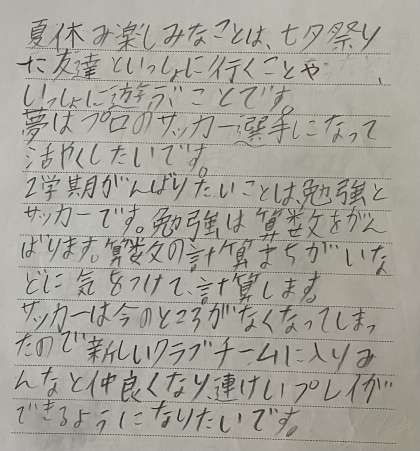 夏休み楽しみなことは、七夕祭り
に友達といっしょに行くことや、
いっしょに遊ぶことです。
夢はプロのサッカー選手になって
活やくしたいです。
2学期がんばりたいことは、勉強と
サッカーです。勉強は算数をがん
ばります。算数の計算まちがいな
どに気をつけて、計算します。
サッカーは今のところがなくなってしまっ
たので新しいクラブチームに入りみ
んなと仲良くなり、連けいプレイが
できるようになりたいです。